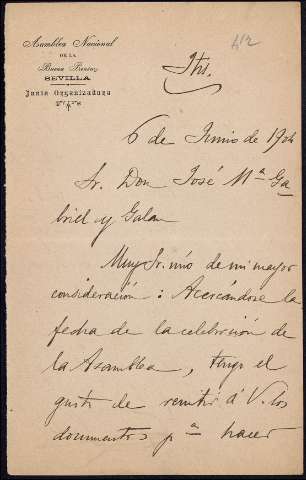 Asamblea Nacional
DE LA
Buena Prensa
SEVILLA
Junta Organizadora
412
Jhs.
6 de Junio de 1904
Sr. Don José Mª Ga
briel y Galan
Muy Sr. mío de mi mayor
consideración: Acercándose la
fecha de la celebración de
la Asamblea, tengo el
gusto de remitir á V. los
documentos pª hacer